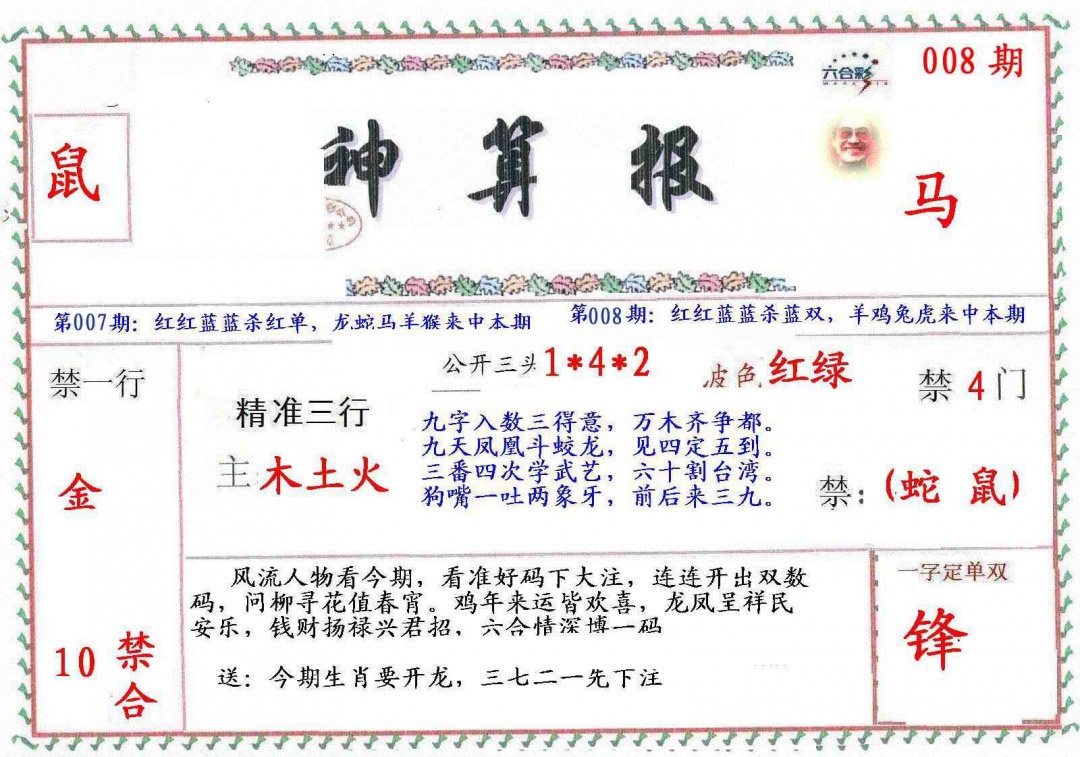 008期
六合彩
鼠
神算报
马
第007期：红红蓝蓝杀红单，龙蛇马羊猴来中本期
第008期：红红蓝蓝杀蓝双，羊鸡兔虎来中本期
禁一行
金
10禁合
精准三行
主木土火
公开三头1*4*2
波色 红绿
九字入数三得意，万木齐争都。
九天凤凰斗蛟龙，见四定五到。
三番四次学武艺，六十割台湾。
狗嘴一吐两象牙，前后来三九。
禁4门
禁：(蛇 鼠)
风流人物看今期，看准好码下大注，连连开出双数
码，问柳寻花值春宵。鸡年来运皆欢喜，龙凤呈祥民
安乐，钱财扬禄兴君招，六合情深博一码
送：今期生肖要开龙，三七二一先下注
一字定单双
锋